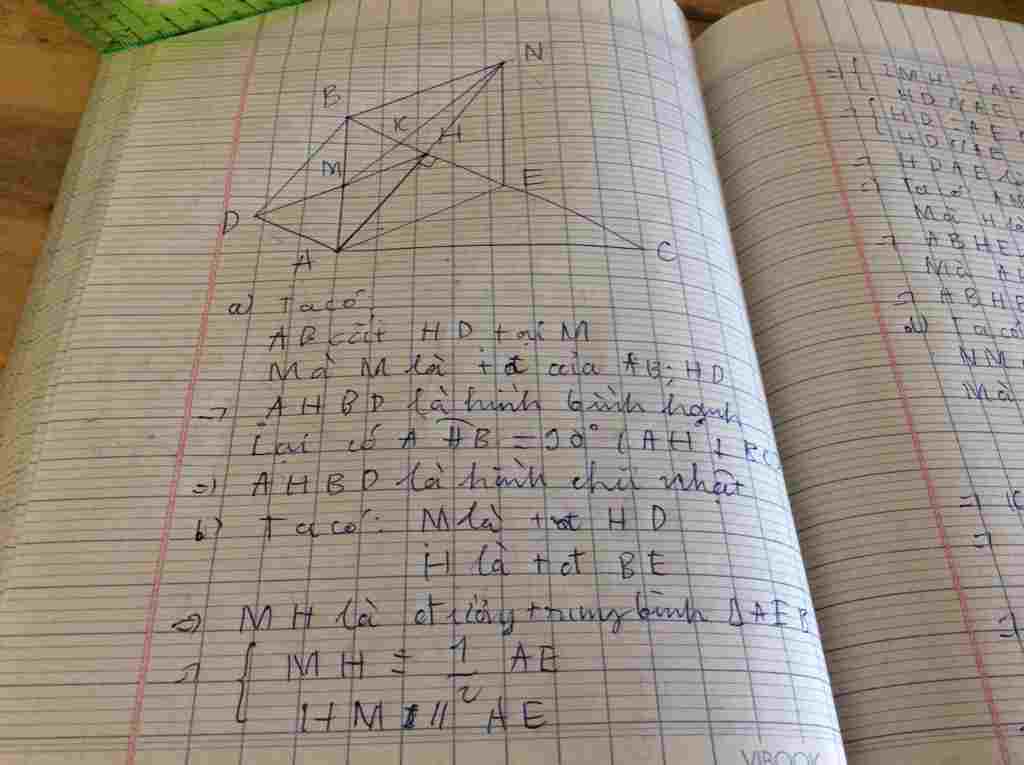 N
B
K
H
M
E
D
A
C
a) Ta có:
AB cắt HD tại M
Mà M là tđ của AB; HD
→ AHBD là hình bình hành
Lại có AHB = 90° (AH ⊥ BC
=> AHBD là hình chữ nhật
b) Ta có: M là tđ HD
H là tđ BE
=> MH là đường trung bình ΔAEB
=> { MH = 1/2 AE
HM // AE
=> { MH = AE
HD // AE
=> { HD = AE
HD // AE
=> HDAE là
Ta có AM
Mà H là
=> ABHE
Mà AH
=> ABHE
d) Ta có
NM
Mà
VIBOOK